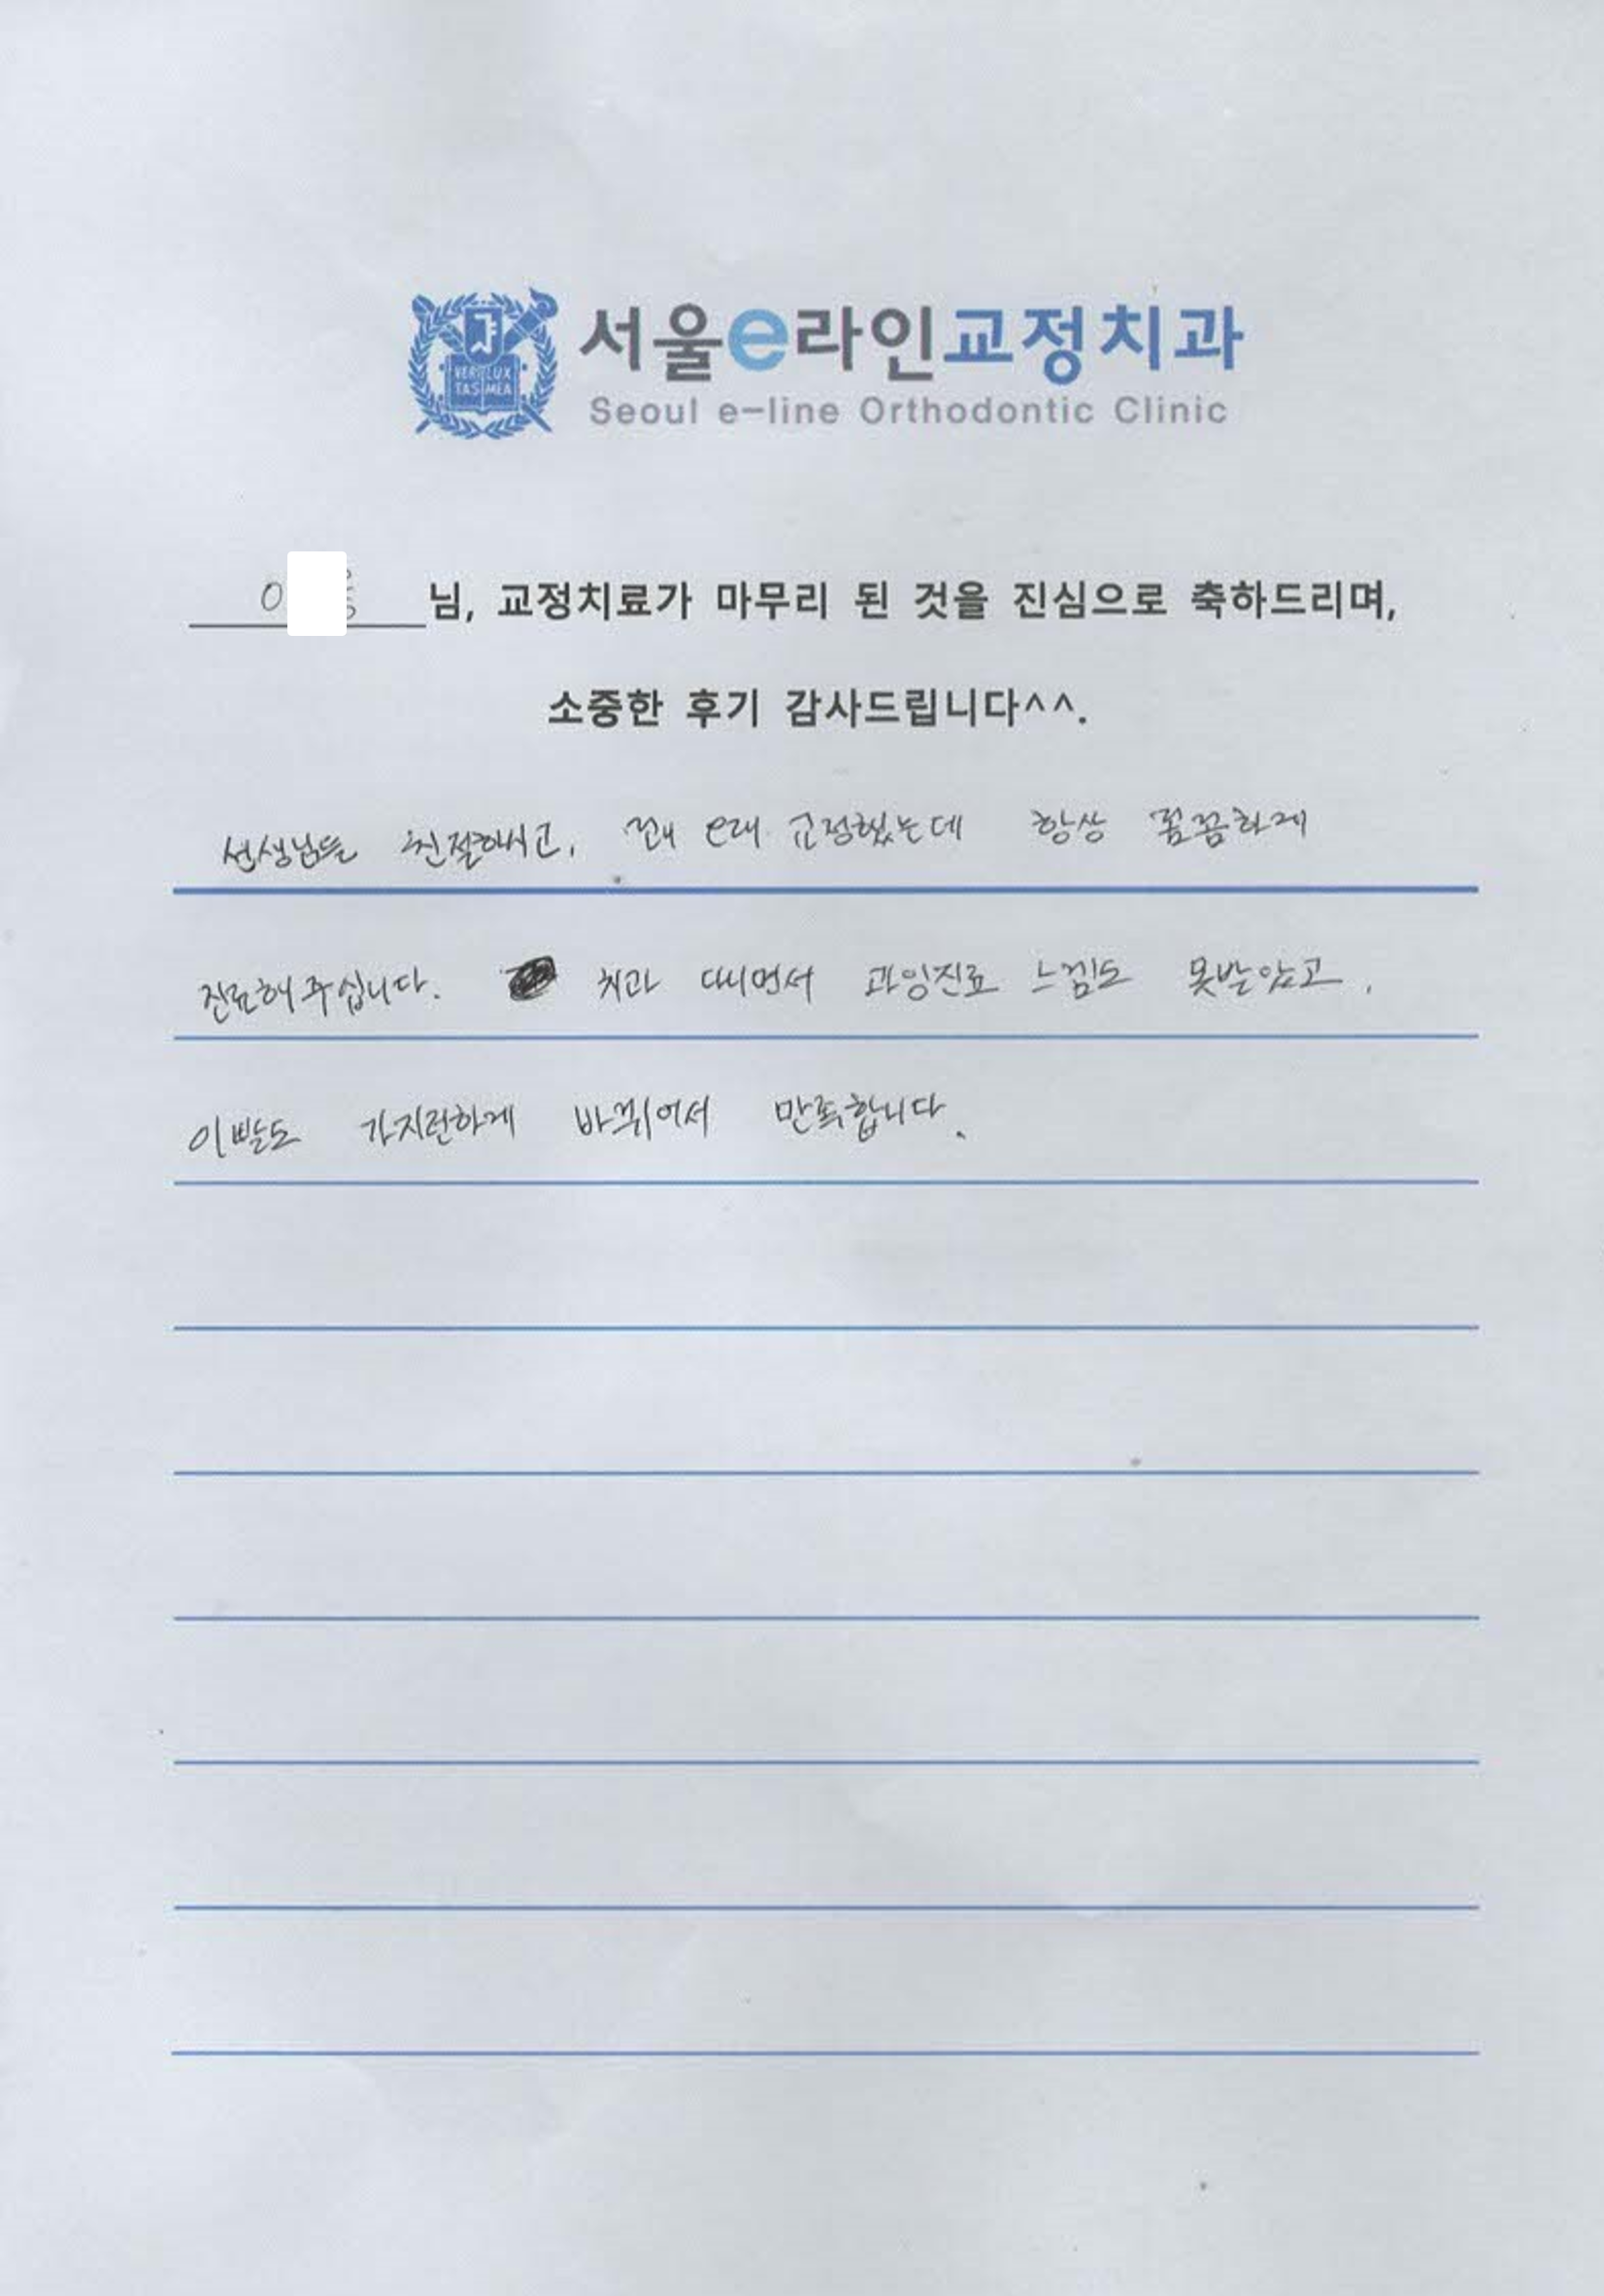 VERI LUX
TAS MEA
서울e라인교정치과
Seoul e-line Orthodontic Clinic
님, 교정치료가 마무리 된 것을 진심으로 축하드리며,
소중한 후기 감사드립니다^^.
선생님들 친절하시고, 꽤 오래 교정했는데 항상 꼼꼼하게
진료해주십니다. 치과 다니면서 과잉진료 느낌도 못받았고,
이빨도 가지런하게 바뀌어서 만족합니다.